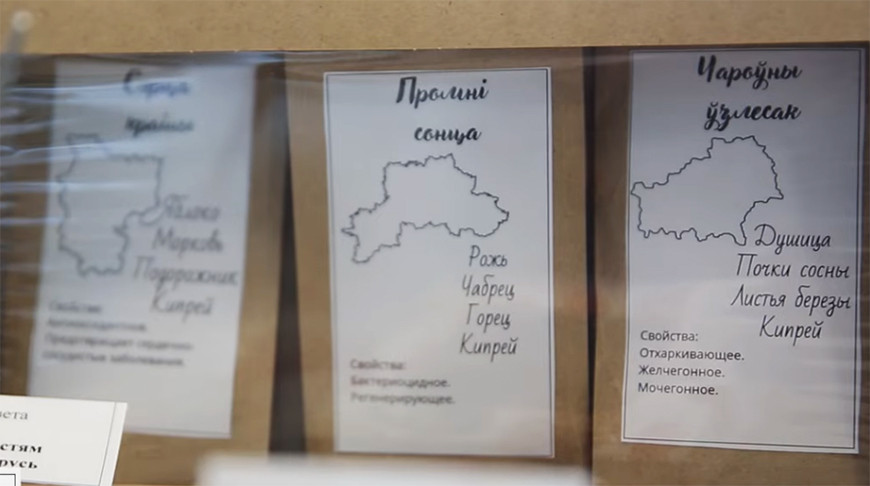 Сэрца
краіны
Яблоко
Морковь
Подорожник
Кипрей
Свойства:
Антиоксидантное.
Предотвращает сердечно-
сосудистые заболевания.
Промні
сонца
Рожь
Чабрец
Горец
Кипрей
Свойства:
Бактериоцидное.
Регенерирующее.
Чароўны
ўзлесак
Душица
Почки сосны
Листья березы
Кипрей
Свойства:
Отхаркивающее.
Желчегонное.
Мочегонное.
вета
стям
русь